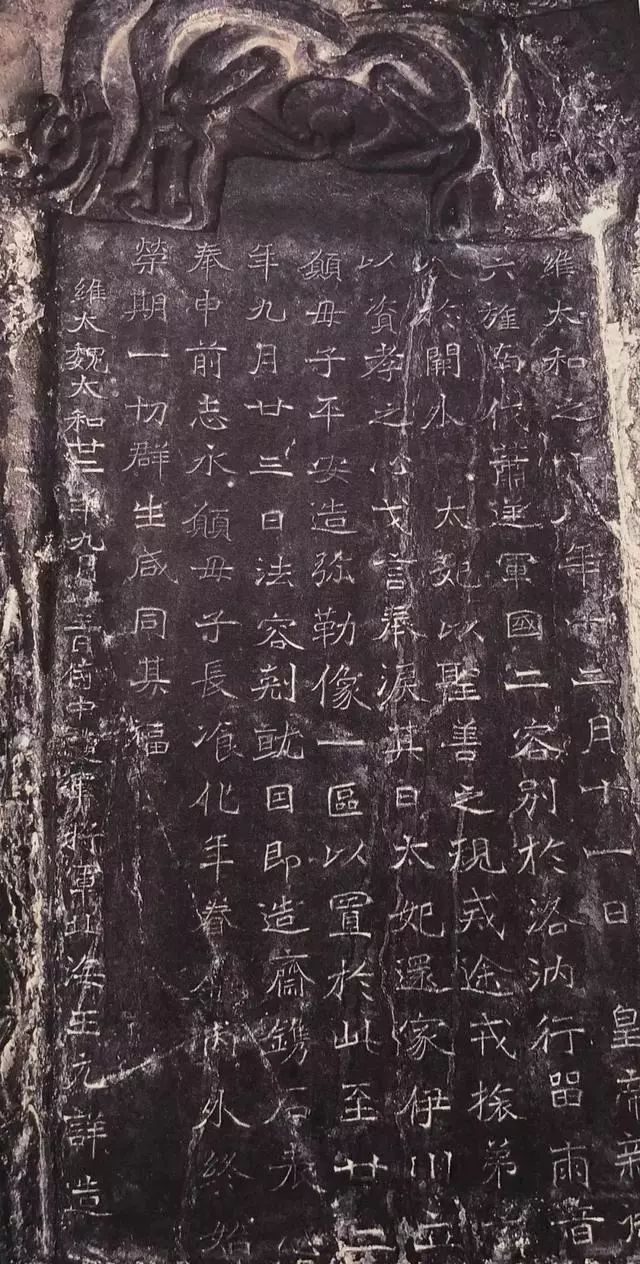 維太和之八年十二月十一日 皇帝親御
六旌南伐蕭逆軍國二容別於洛汭行留兩音
分於闕外 太妃以聖善之規戒途戎旅弟子
以資孝之心戈言奉淚其日太妃還家伊川立
願母子平安造弥勒像一區以置於此至廿二
年九月廿三日法容剋就因即造齋鐫石表心
奉申前志永願母子長飡化年眷內外終始
榮期一切群生咸同其福
維大魏太和廿二年九月廿三日侍中護軍將軍北海王元詳造